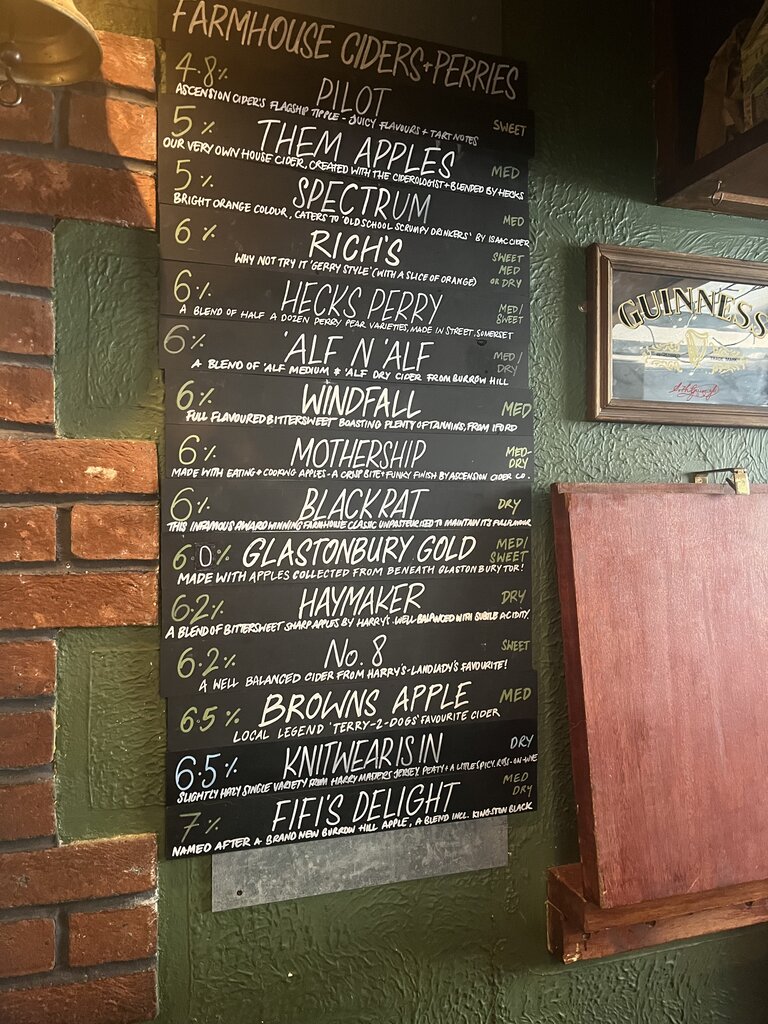 FARMHOUSE CIDERS + PERRIES
4.8% PILOT
ASCENSION CIDER'S FLAGSHIP TIPPLE - JUICY FLAVOURS + TART NOTES SWEET
5% THEM APPLES MED
OUR VERY OWN HOUSE CIDER, CREATED WITH THE CIDEROLOGIST + BLENDED BY HECKS
5% SPECTRUM MED
BRIGHT ORANGE COLOUR, CATERS TO 'OLD SCHOOL SCRUMPY DRINKERS' BY ISAAC CIDER
6% RICH'S SWEET MED OR DRY
WHY NOT TRY IT 'GERRY STYLE' (WITH A SLICE OF ORANGE)
6% HECKS PERRY MED/SWEET
A BLEND OF HALF A DOZEN PERRY PEAR VARIETIES, MADE IN STREET, SOMERSET
6% 'ALF N 'ALF MED/DRY
A BLEND OF 'ALF MEDIUM & 'ALF DRY CIDER FROM BURROW HILL
6% WINDFALL MED
FULL FLAVOURED BITTERSWEET BOASTING PLENTY OF TANNINS, FROM IFORD
6% MOTHERSHIP MED-DRY
MADE WITH EATING + COOKING APPLES - A CRISP BITE + FUNKY FINISH BY ASCENSION CIDER CO.
6% BLACK RAT DRY
THIS INFAMOUS AWARD WINNING FARMHOUSE CLASSIC UNPASTEURISED TO MAINTAIN IT'S FULL FLAVOUR
6.0% GLASTONBURY GOLD MED/SWEET
MADE WITH APPLES COLLECTED FROM BENEATH GLASTONBURY TOR!
6.2% HAYMAKER DRY
A BLEND OF BITTERSWEET SHARP APPLES BY HARRY'S. WELL BALANCED WITH SUBTLE ACIDITY.
6.2% No. 8 SWEET
A WELL BALANCED CIDER FROM HARRY'S - LANDLADY'S FAVOURITE!
6.5% BROWNS APPLE MED
LOCAL LEGEND 'TERRY-2-DOGS' FAVOURITE CIDER
6.5% KNITWEAR IS IN DRY
SLIGHTLY HAZY SINGLE VARIETY FROM HARRY MASTERS JERSEY. PEATY + A LITTLE SPICY.
7% FIFI'S DELIGHT MED DRY
NAMED AFTER A BRAND NEW BURROW HILL APPLE, A BLEND INCL. KINGSTON BLACK
GUINNESS
TRADE MARK